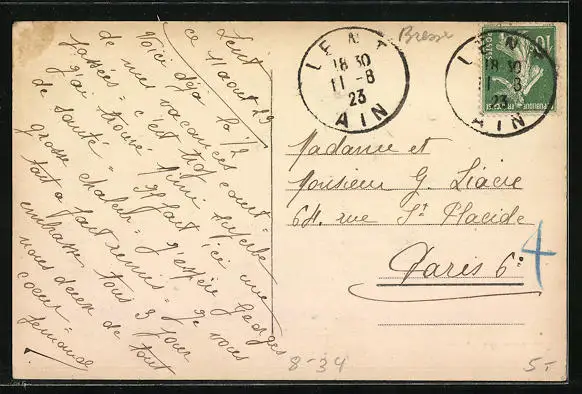 Lent
ce 11 août 23
Voici déjà la 1/2
de mes vacances
passées = c'est trop court =
j'ai trouvé Mimi superbe
de santé = Il fait ici une
grosse chaleur = J'espère Georges
tout à fait remis = Je vous
embrasse tous 3 pour
nous deux de tout
coeur =
Fernande
LENT
18 30
11 -8
23
AIN
Bresse
LENT
18 30
11 -8
23
AIN
10
Madame et
Monsieur G. Liacre
64. rue St Placide
Paris 6e
4
8-34
5-